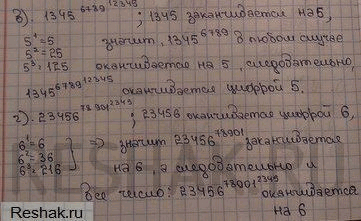 в). 1345^6789^12345 ; 1345 заканчивается на 5,
5¹=5
5²=25
5³=125
значит, 1345^6789 в любом случае
оканчивается на 5, следовательно,
1345^6789^12345 оканчивается цифрой 5.
г). 23456^78901^2345 ; 23456 оканчивается цифрой 6,
6¹=6
6²=36
6³=216
⇒ значит 23456^78901 заканчивается
на 6, а следовательно и
все число: 23456^78901^2345 оканчивается
на 6
Reshak.ru